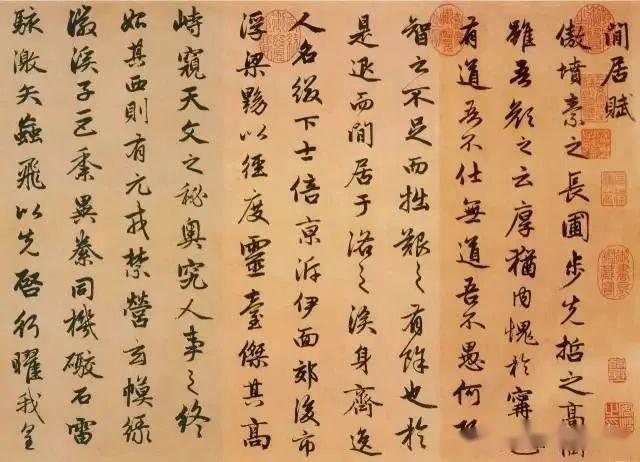 閒居賦
傲墳素之長圃步先哲之高衢
雖吾顏之云厚猶內愧於甯
有道吾不仕無道吾不愚何巧
智之不足而拙艱之有餘也於
是退而閒居于洛之涘身齊逸
人名綴下士倍京泝伊面郊後市
浮梁黝以徑度靈臺傑其高
峙窺天文之秘奧究人事之終
始其西則有元戎禁營玄幙綠
徽溪子巨黍異絭同機礮石雷
駭激矢蝱飛以先啓行曜我皇